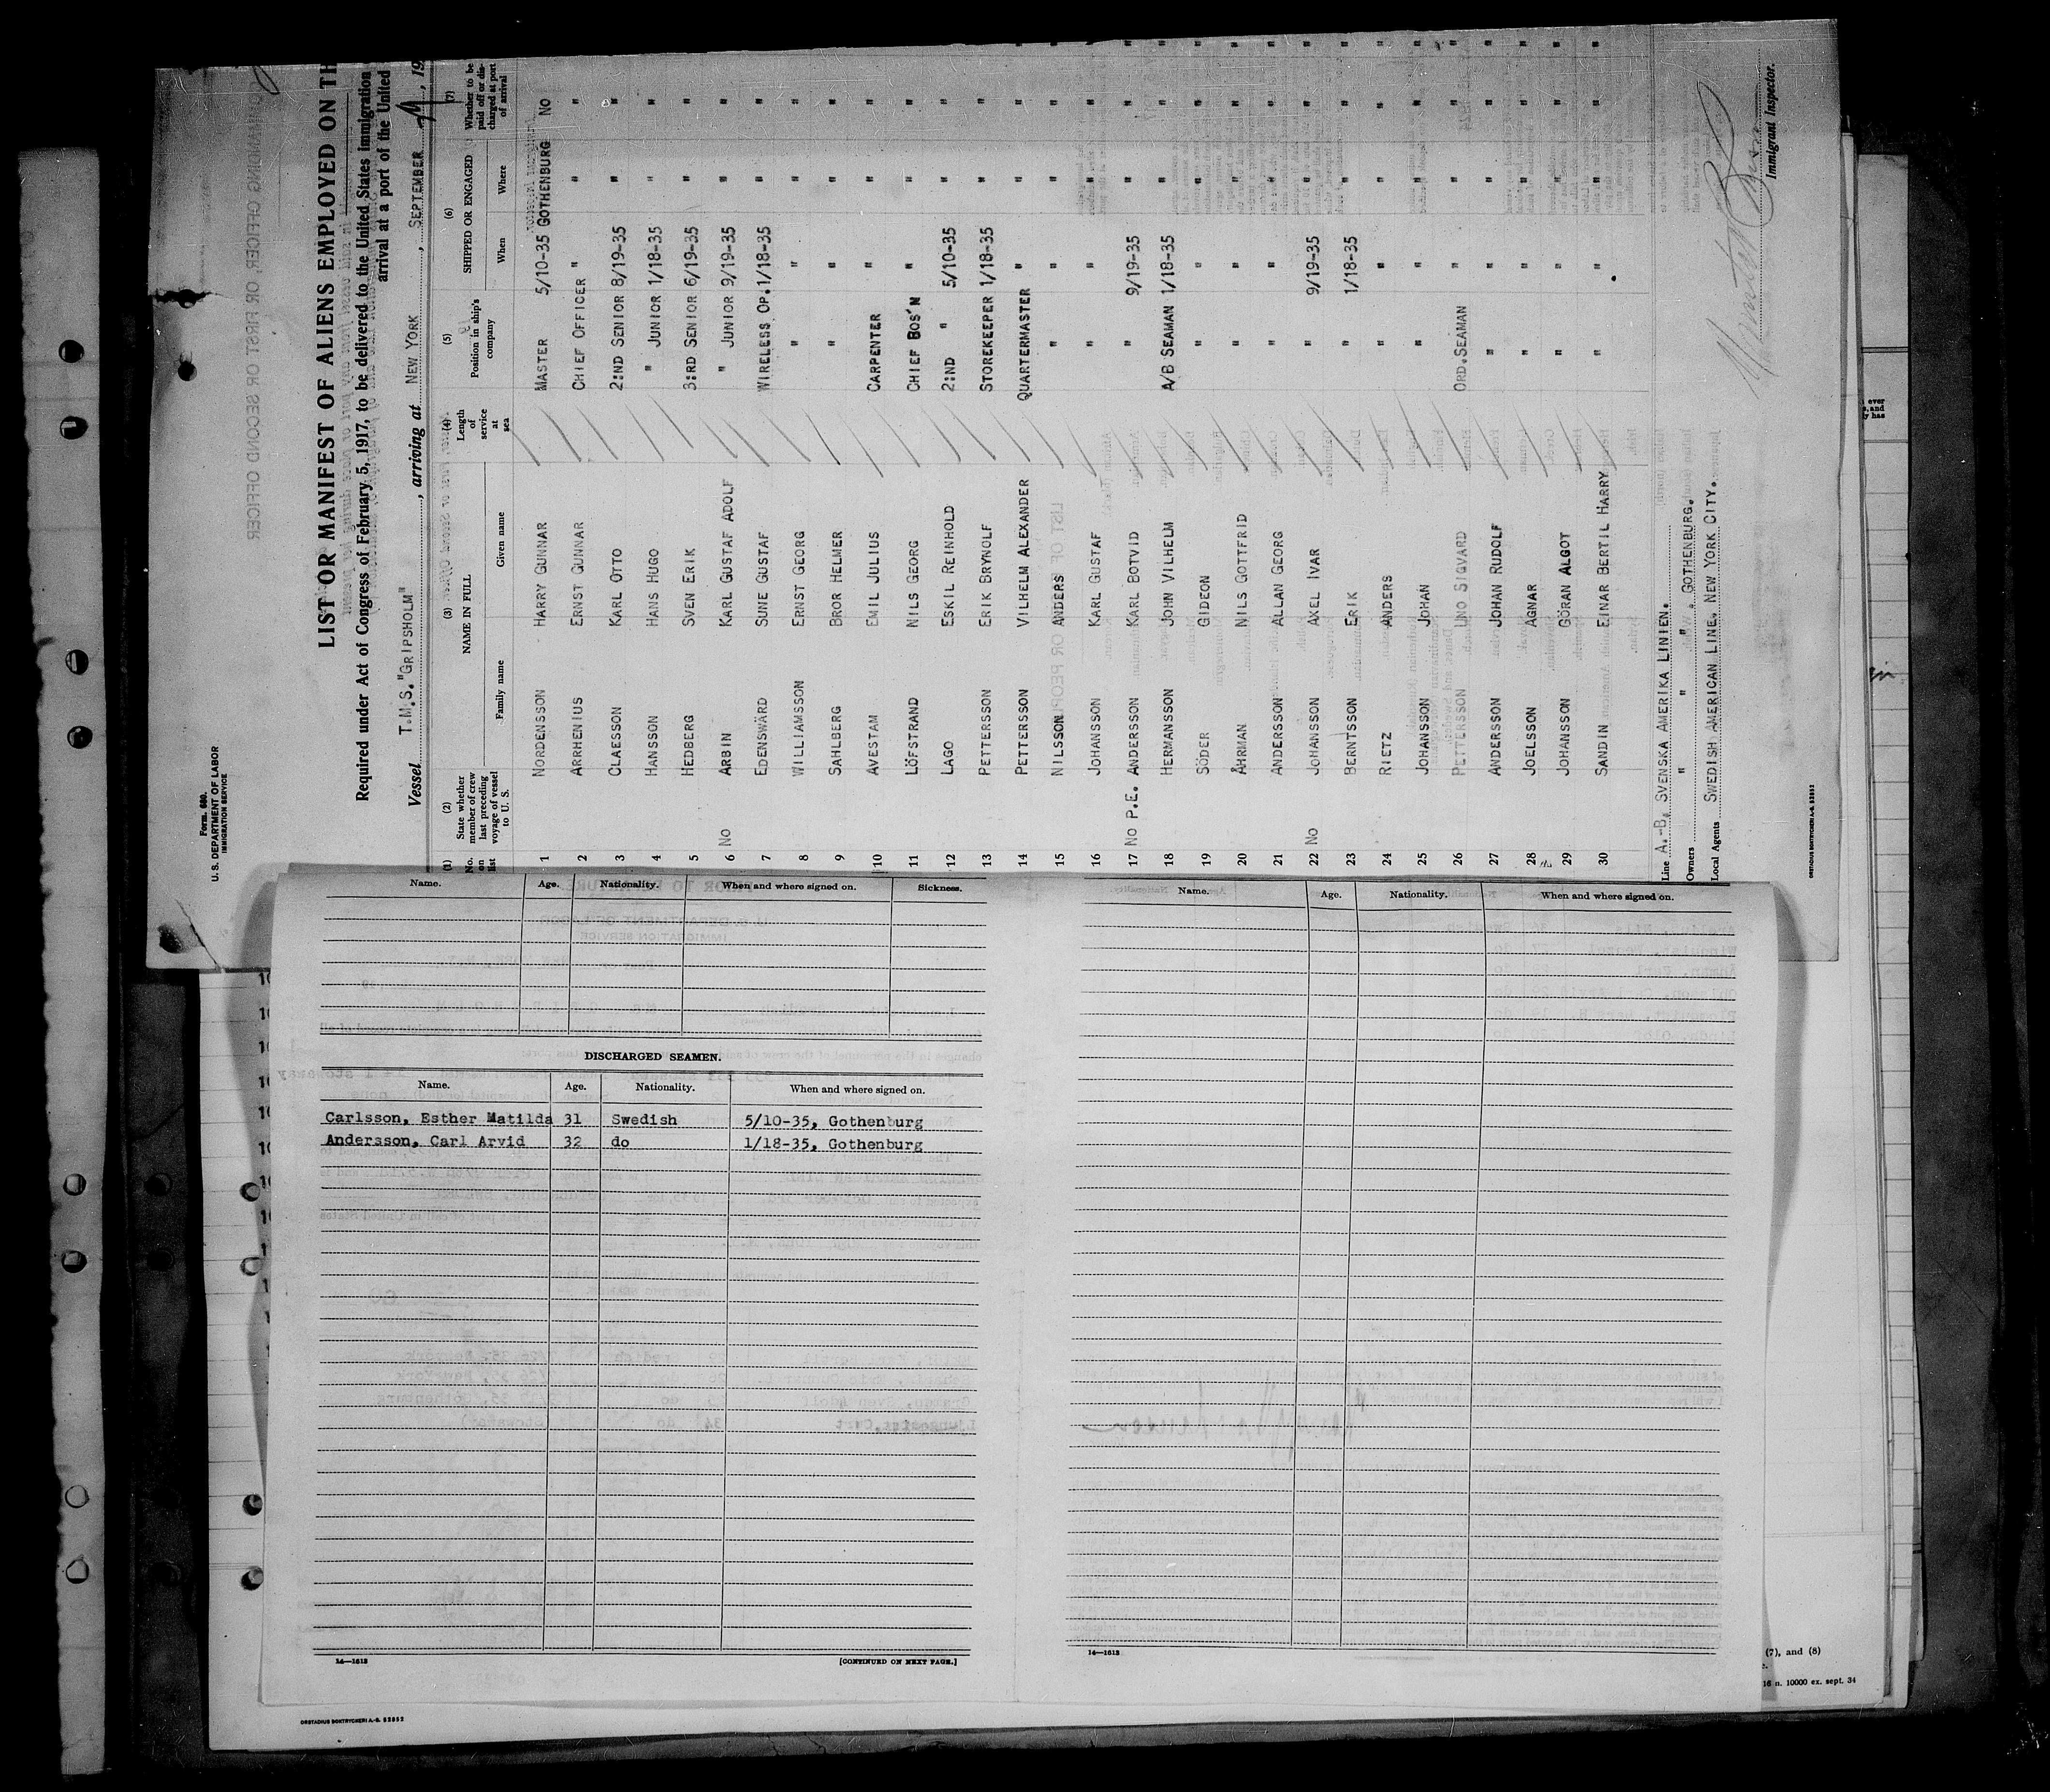 Form 680.
U. S. DEPARTMENT OF LABOR
IMMIGRATION SERVICE
LIST OR MANIFEST OF ALIENS EMPLOYED ON TH
Required under Act of Congress of February 5, 1917, to be delivered to the United States immigration
arrival at a port of the United
Vessel T.M.S."GRIPSHOLM", arriving at NEW YORK, SEPTEMBER 29, 19
(1) No. on list (2) State whether member of crew last preceding voyage of vessel to U. S. (3) NAME IN FULL Family name Given name (4) Length of service at sea (5) Position in ship's company (6) SHIPPED OR ENGAGED When Where (7) Whether to be paid off or discharged at port of arrival
1 NORDENSSON HARRY GUNNAR MASTER 5/10-35 GOTHENBURG NO
2 ARRHENIUS ERNST GUNNAR CHIEF OFFICER " " "
3 CLAESSON KARL OTTO 2:ND SENIOR 8/19-35 " "
4 HANSSON HANS HUGO " JUNIOR 1/18-35 " "
5 HEDBERG SVEN ERIK 3:RD SENIOR 6/19-35 " "
6 NO ARBIN KARL GUSTAF ADOLF " JUNIOR 9/19-35 " "
7 EDENSWÄRD SUNE GUSTAF WIRELESS OP. 1/18-35 " "
8 WILLIAMSSON ERNST GEORG " " " "
9 SAHLBERG BROR HELMER " " " "
10 AVESTAM EMIL JULIUS CARPENTER " " "
11 LÖFSTRAND NILS GEORG CHIEF BOS'N " " "
12 LAGO ESKIL REINHOLD 2:ND " 5/10-35 " "
13 PETTERSSON ERIK BRYNOLF STOREKEEPER 1/18-35 " "
14 PETTERSSON VILHELM ALEXANDER QUARTERMASTER " " "
15 NILSSON ANDERS " " " "
16 JOHANSSON KARL GUSTAF " " " "
17 NO P.E. ANDERSSON KARL BOTVID " 9/19-35 " "
18 HERMANSSON JOHN VILHELM A/B SEAMAN 1/18-35 " "
19 SÖDER GIDEON " " " "
20 ÅHRMAN NILS GOTTFRID " " " "
21 ANDERSSON ALLAN GEORG " " " "
22 NO JOHANSSON AXEL IVAR " 9/19-35 " "
23 BERNTSSON ERIK " 1/18-35 " "
24 RIETZ ANDERS " " " "
25 JOHANSSON JOHAN " " " "
26 PETTERSSON UNO SIGVARD ORD.SEAMAN " " "
27 ANDERSSON JOHAN RUDOLF " " " "
28 JOELSSON AGNAR " " " "
29 JOHANSSON GÖRAN ALGOT " " " "
30 SANDIN EINAR BERTIL HARRY " " " "
Line A.-B. SVENSKA AMERIKA LINIEN.
Owners " " " GOTHENBURG.
Local Agents SWEDISH AMERICAN LINE. NEW YORK CITY.
Immigrant Inspector.
ORSTADIUS BOKTRYCKERI A.-B. 52552
Name. Age. Nationality. When and where signed on. Sickness.
DISCHARGED SEAMEN.
Name. Age. Nationality. When and where signed on.
Carlsson, Esther Matilda 31 Swedish 5/10-35, Gothenburg
Andersson, Carl Arvid 32 do 1/18-35, Gothenburg
14—1613 [CONTINUED ON NEXT PAGE.]
Name. Age. Nationality. When and where signed on.
14—1613
ORSTADIUS BOKTRYCKERI A.-B. 52552
(7), and (8)
16 n. 10000 ex. sept. 34